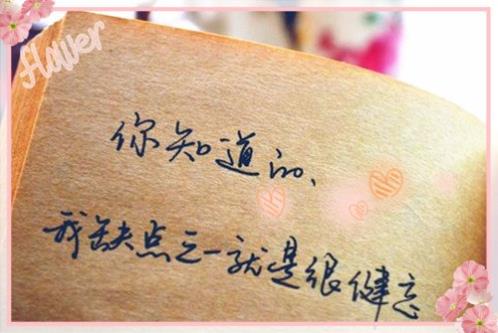 flower
你知道的、
我缺点之一就是很健忘